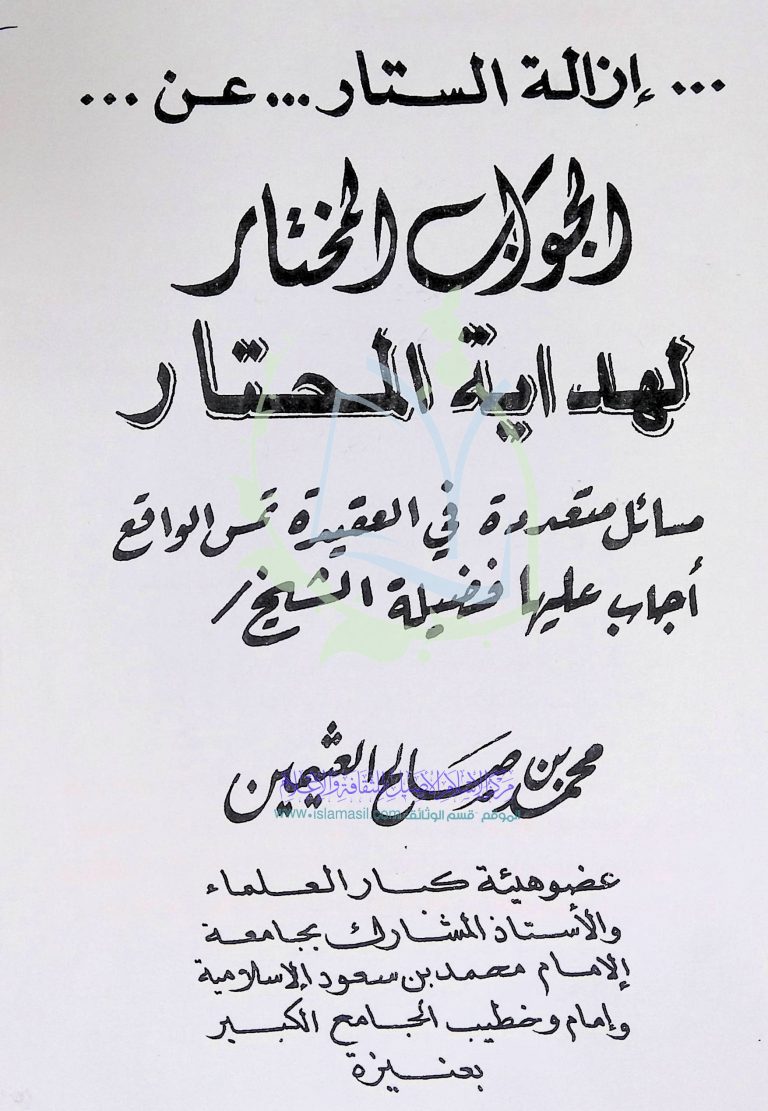 ... إزالة الستار ... عن ...
الجواب المختار
لهداية المحتار
مسائل متعددة في العقيدة تمس الواقع
أجاب عليها فضيلة الشيخ /
محمد بن صالح العثيمين
مركز الإسلام الأصيل للثقافة والإعلام
الموقع - قسم الوثائق www.islamasil.com
عضو هيئة كبار العلماء
والأستاذ المشارك بجامعة
الإمام محمد بن سعود الإسلامية
وإمام وخطيب الجامع الكبير
بعنيزة